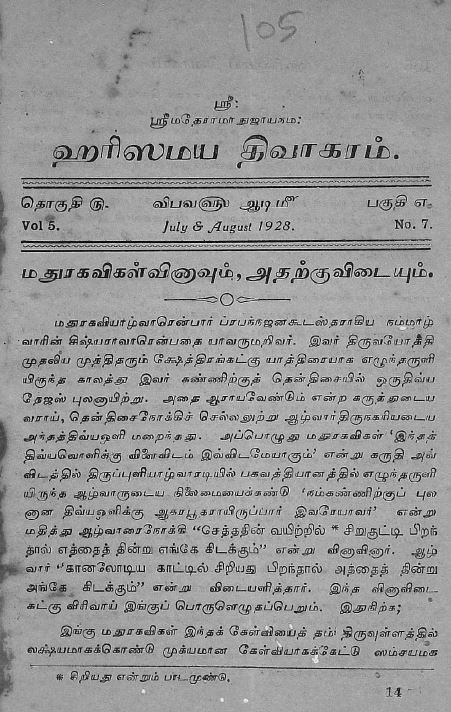 105
ஸ்ரீ:
ஸ்ரீமதேராமாநுஜாயநம:
ஹரிஸமய திவாகரம்.
தொகுதி ௫. விபவ௵ ஆடி௴ பகுதி ௭.
Vol 5. July & August 1928. No. 7.
மதுரகவிகள்வினாவும், அதற்குவிடையும்.
மதுரகவியாழ்வாரென்பார் ப்ரபந்நஜனகூடஸ்தராகிய நம்மாழ்
வாரின் சிஷ்யராவாரென்பதை யாவருமறிவர். இவர் திருவயோத்தி
முதலிய முத்திதரும் க்ஷேத்திரங்கட்கு யாத்திரையாக எழுந்தருளி
யிருந்த காலத்து இவர் கண்ணிற்குத் தென்திசையில் ஒருதிவ்ய
தேஜஸ் புலனாயிற்று. அதை ஆராயவேண்டும் என்ற கருத்துடைய
வராய், தென்திசைநோக்கிச் செல்லலுற்று ஆழ்வார்திருநகரியடைய
அந்தத்திவ்யஒளி மறைந்தது. அப்பொழுது மதுரகவிகள் 'இந்தத்
திவ்யவொளிக்கு விளைவிடம் இவ்விடமேயாகும்' என்று கருதி அவ்
விடத்தில் திருப்புளியாழ்வாரடியில் பகவத்தியானத்தில் எழுந்தருளி
யிருந்த ஆழ்வாருடைய நிலைமையைக்கண்டு 'நம்கண்ணிற்குப் புல
னான திவ்யஒளிக்கு ஆகரபூதராயிருப்பார் இவரேயாவர்' என்று
மதித்து ஆழ்வாரைநோக்கி "செத்ததின் வயிற்றில் * சிறுகுட்டி பிறந்
தால் எத்தைத் தின்று எங்கே கிடக்கும்" என்று வினாவினார். ஆழ்
வார் "கானலோடிய காட்டில் சிறியது பிறந்தால் அத்தைத் தின்று
அங்கே கிடக்கும்" என்று விடையளித்தார். இந்த வினாவிடை
கட்கு விரிவாய் இங்குப் பொருளெழுதப்பெறும். இதுநிற்க;
இங்கு மதுரகவிகள் இந்தக் கேள்வியைத் தம் திருவுள்ளத்தில்
லக்ஷ்யமாகக்கொண்டு முக்யமான கேள்வியாகக்கேட்டு ஸம்சயமக
* சிறியது என்றும் பாடமுண்டு.
14